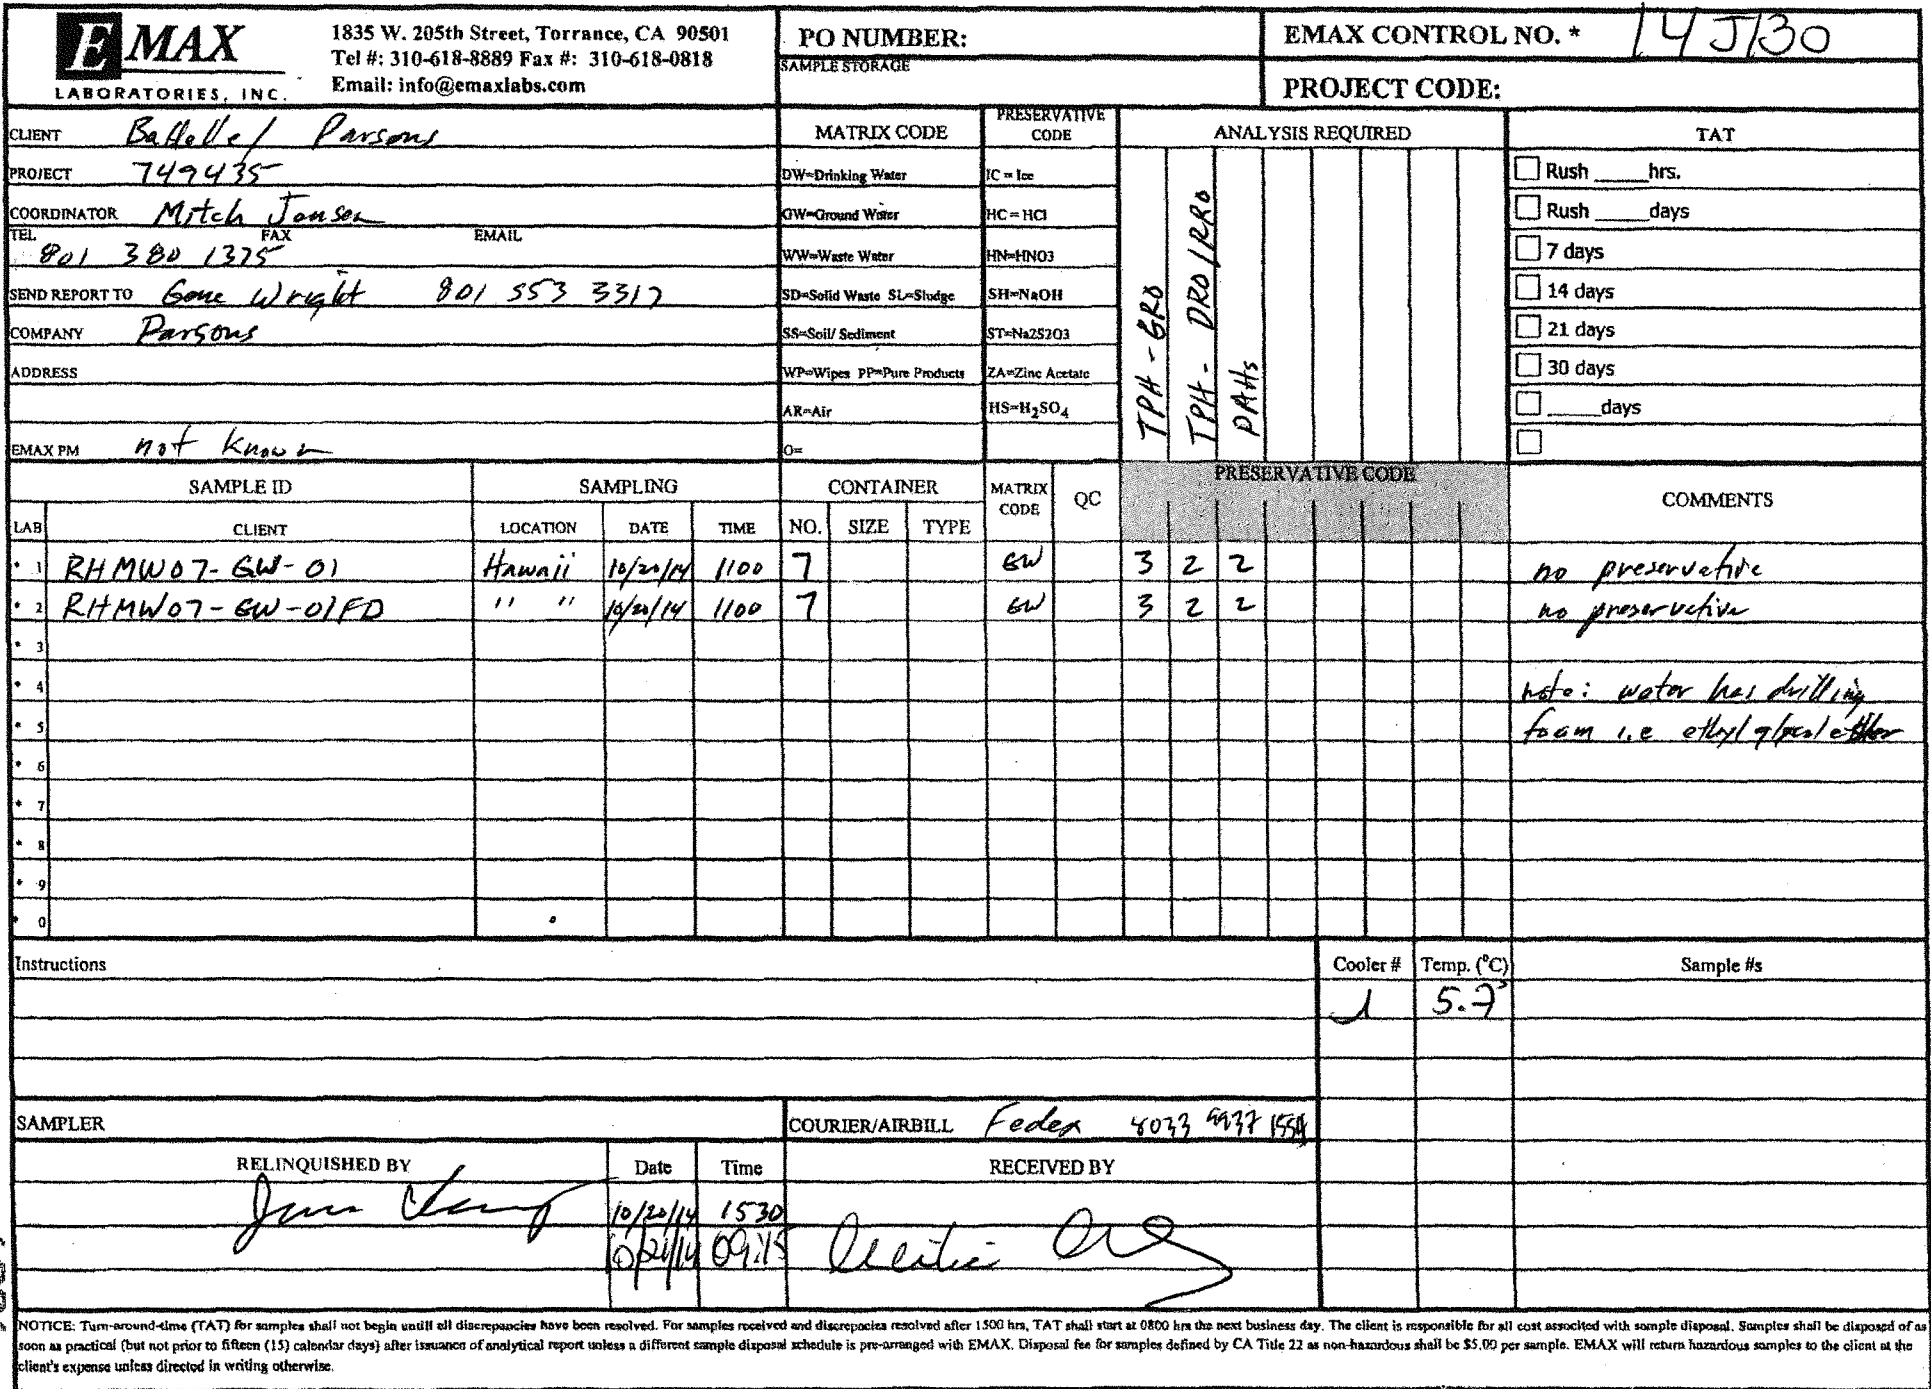 EMAX
LABORATORIES, INC.
1835 W. 205th Street, Torrance, CA 90501
Tel #: 310-618-8889 Fax #: 310-618-0818
Email: info@emaxlabs.com
PO NUMBER:
SAMPLE STORAGE
EMAX CONTROL NO. * 14J130
PROJECT CODE:
CLIENT Battelle / Parsons
PROJECT 749435
COORDINATOR Mitch Jensen
TEL FAX EMAIL
801 380 1375
SEND REPORT TO Gene Wright 801 553 3317
COMPANY Parsons
ADDRESS
EMAX PM not known
MATRIX CODE
DW=Drinking Water
GW=Ground Water
WW=Waste Water
SD=Solid Waste SL=Sludge
SS=Soil/ Sediment
WP=Wipes PP=Pure Products
AR=Air
O=
PRESERVATIVE CODE
IC = Ice
HC = HCl
HN=HNO3
SH=NaOH
ST=Na2S2O3
ZA=Zinc Acetate
HS=H2SO4
ANALYSIS REQUIRED
TPH - GRO
TPH - DRO/RRO
PAHs
TAT
Rush _____hrs.
Rush _____days
7 days
14 days
21 days
30 days
_____days
SAMPLE ID SAMPLING CONTAINER MATRIX CODE QC PRESERVATIVE CODE COMMENTS
LAB CLIENT LOCATION DATE TIME NO. SIZE TYPE
* 1 RHMW07-GW-01 Hawaii 10/20/14 1100 7 GW 3 2 2 no preservative
* 2 RHMW07-GW-01FD " " 10/20/14 1100 7 GW 3 2 2 no preservative
* 3
* 4 note: water has drilling
* 5 foam i.e ethyl glycol ether
* 6
* 7
* 8
* 9
* 0
Instructions
Cooler # Temp. (°C) Sample #s
1 5.7°
SAMPLER
COURIER/AIRBILL Fedex 8033 9937
RELINQUISHED BY Date Time RECEIVED BY
10/20/14 1530
10/21/14 09:15
NOTICE: Turn-around-time (TAT) for samples shall not begin untill all discrepancies have been resolved. For samples received and discrepocies resolved after 1500 hrs, TAT shall start at 0800 hrs the next business day. The client is responsible for all cost associted with sample disposal. Samples shall be disposed of as
soon as practical (but not prior to fifteen (15) calendar days) after issuance of analytical report unless a different sample disposal schedule is pre-arranged with EMAX. Disposal fee for samples defined by CA Title 22 as non-hazardous shall be $5.00 per sample. EMAX will return hazardous samples to the client at the
client's expense unless directed in writing otherwise.